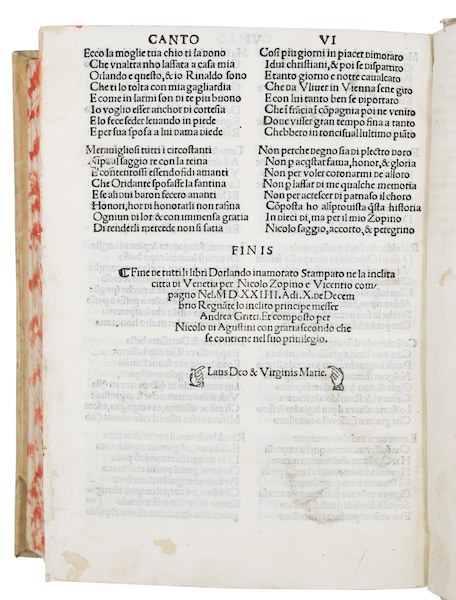 CANTO VI
Ecco la moglie tua chio ti la dono
Che vnaltra nho lassata a casa mia
Orlando e questo, & io Rinaldo sono
Che ti lo tolta con mia gagliardia
E come in larmi son di te piu buono
Io voglio esser anchor di cortesia
Elo fece seder leuando in piede
E per sua sposa a lui dama diede
Merauigliosi tutti i circostanti
saggio re con la reina
E contentossi essendo fidi amanti
Che Oridante sposasse la fantina
E se alsi dui baron fecero ananti
Honor, hor di honorarli non rafina
Ogniun di lor & con immensa gratia
Di renderli mercede non si satia
Cosi piu giorni in piacer dimorato
I dui christiani, & poi se dispartiro
Et tanto giorno e notte caualcato
Che da Vliuer in Vienna sene giro
Et con lui tanto ben se diportaro
Che i frácia i cōpagnia poi ne vniro
Doue visser gran tempo fina a tanto
Chebbero in roncisual lultimo piáto
Non perche degno sia di plectro doro
Non p acqstar fama, honor, & gloria
Non per voler coronarmi de alloro
Non p lassar di me qualche memoria
Non per acrescer di parnaso il choro
Cōposta ho allprouista qsta historia
In dieci di, ma per il mio Zopino
Nicolo saggio, accorto, & peregrino
FINIS
Fine de tutti li libri Dorlando inamorato Stampato ne la inclita
citta di Venetia per Nicolo Zopino e Vicentio com⸗
pagno Nel. M.D.XXIIII. Adi. X. de Decem
brio Regnāte lo inclito principe messer
Andrea Gritti. Et composto per
Nicolo di Agustini con gratia secondo che
se contiene nel suo priuilegio.
Laus Deo & Virginis Marie.